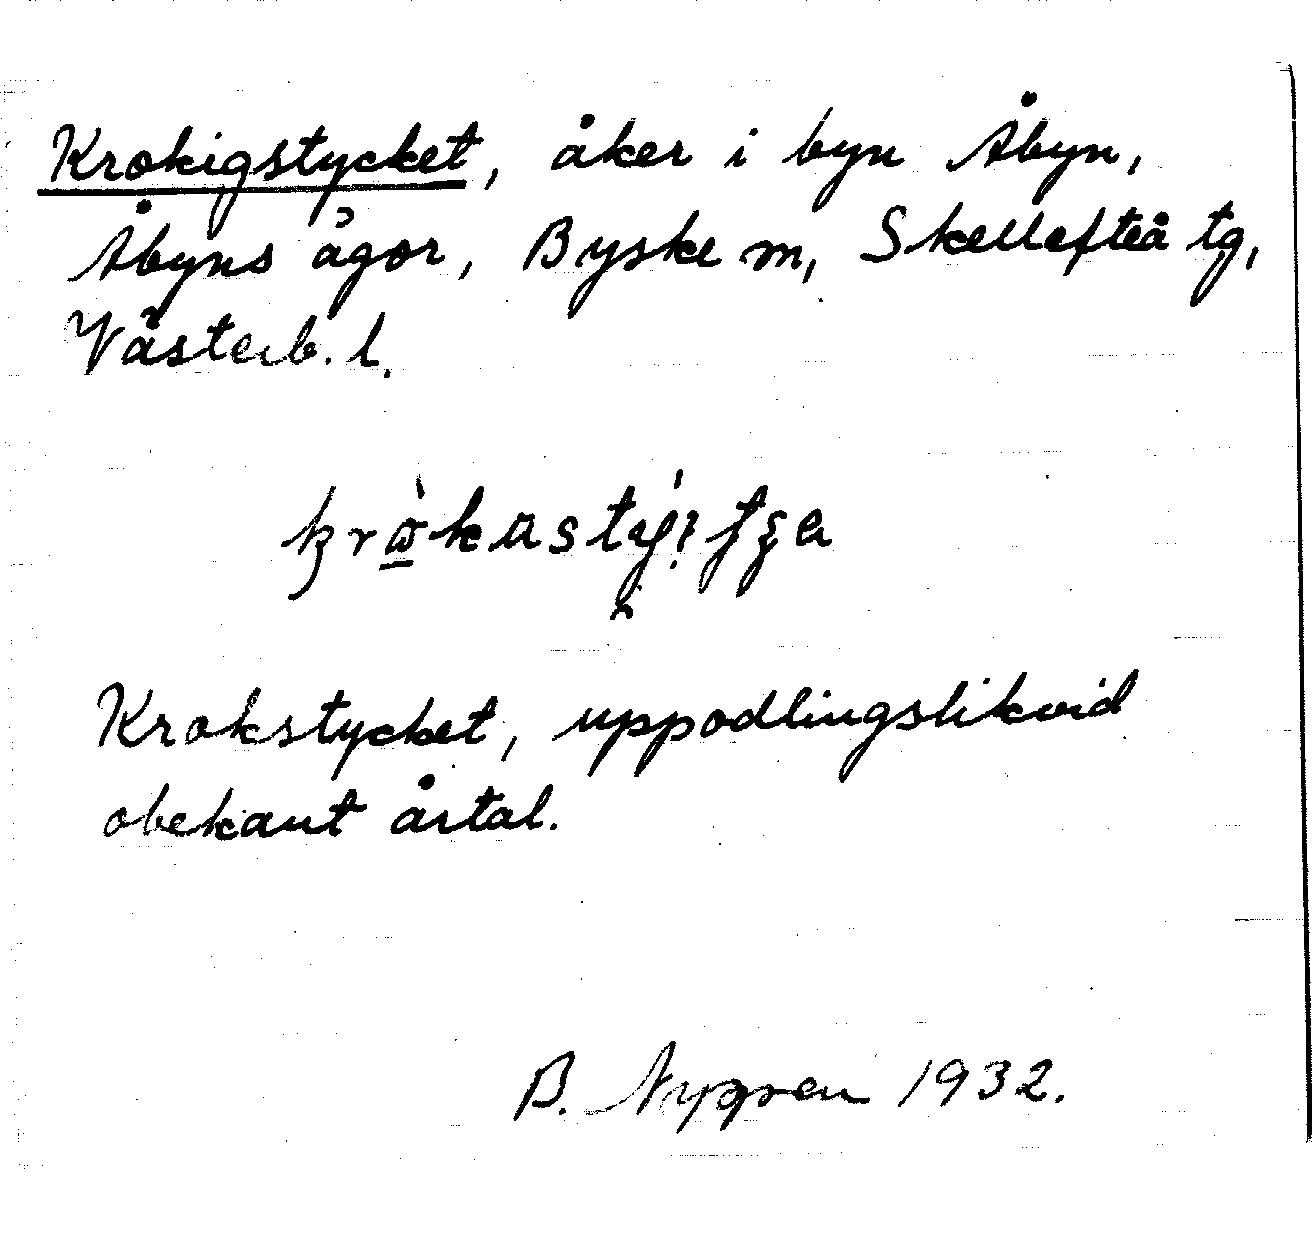 Krokigstycket, åker i byn Åbyn,
Åbyns ägor, Byske sn, Skellefteå tg,
Västerb. l.
Krokstycket, uppodlingslikvid
obekant årtal.
B. Nygren 1932.